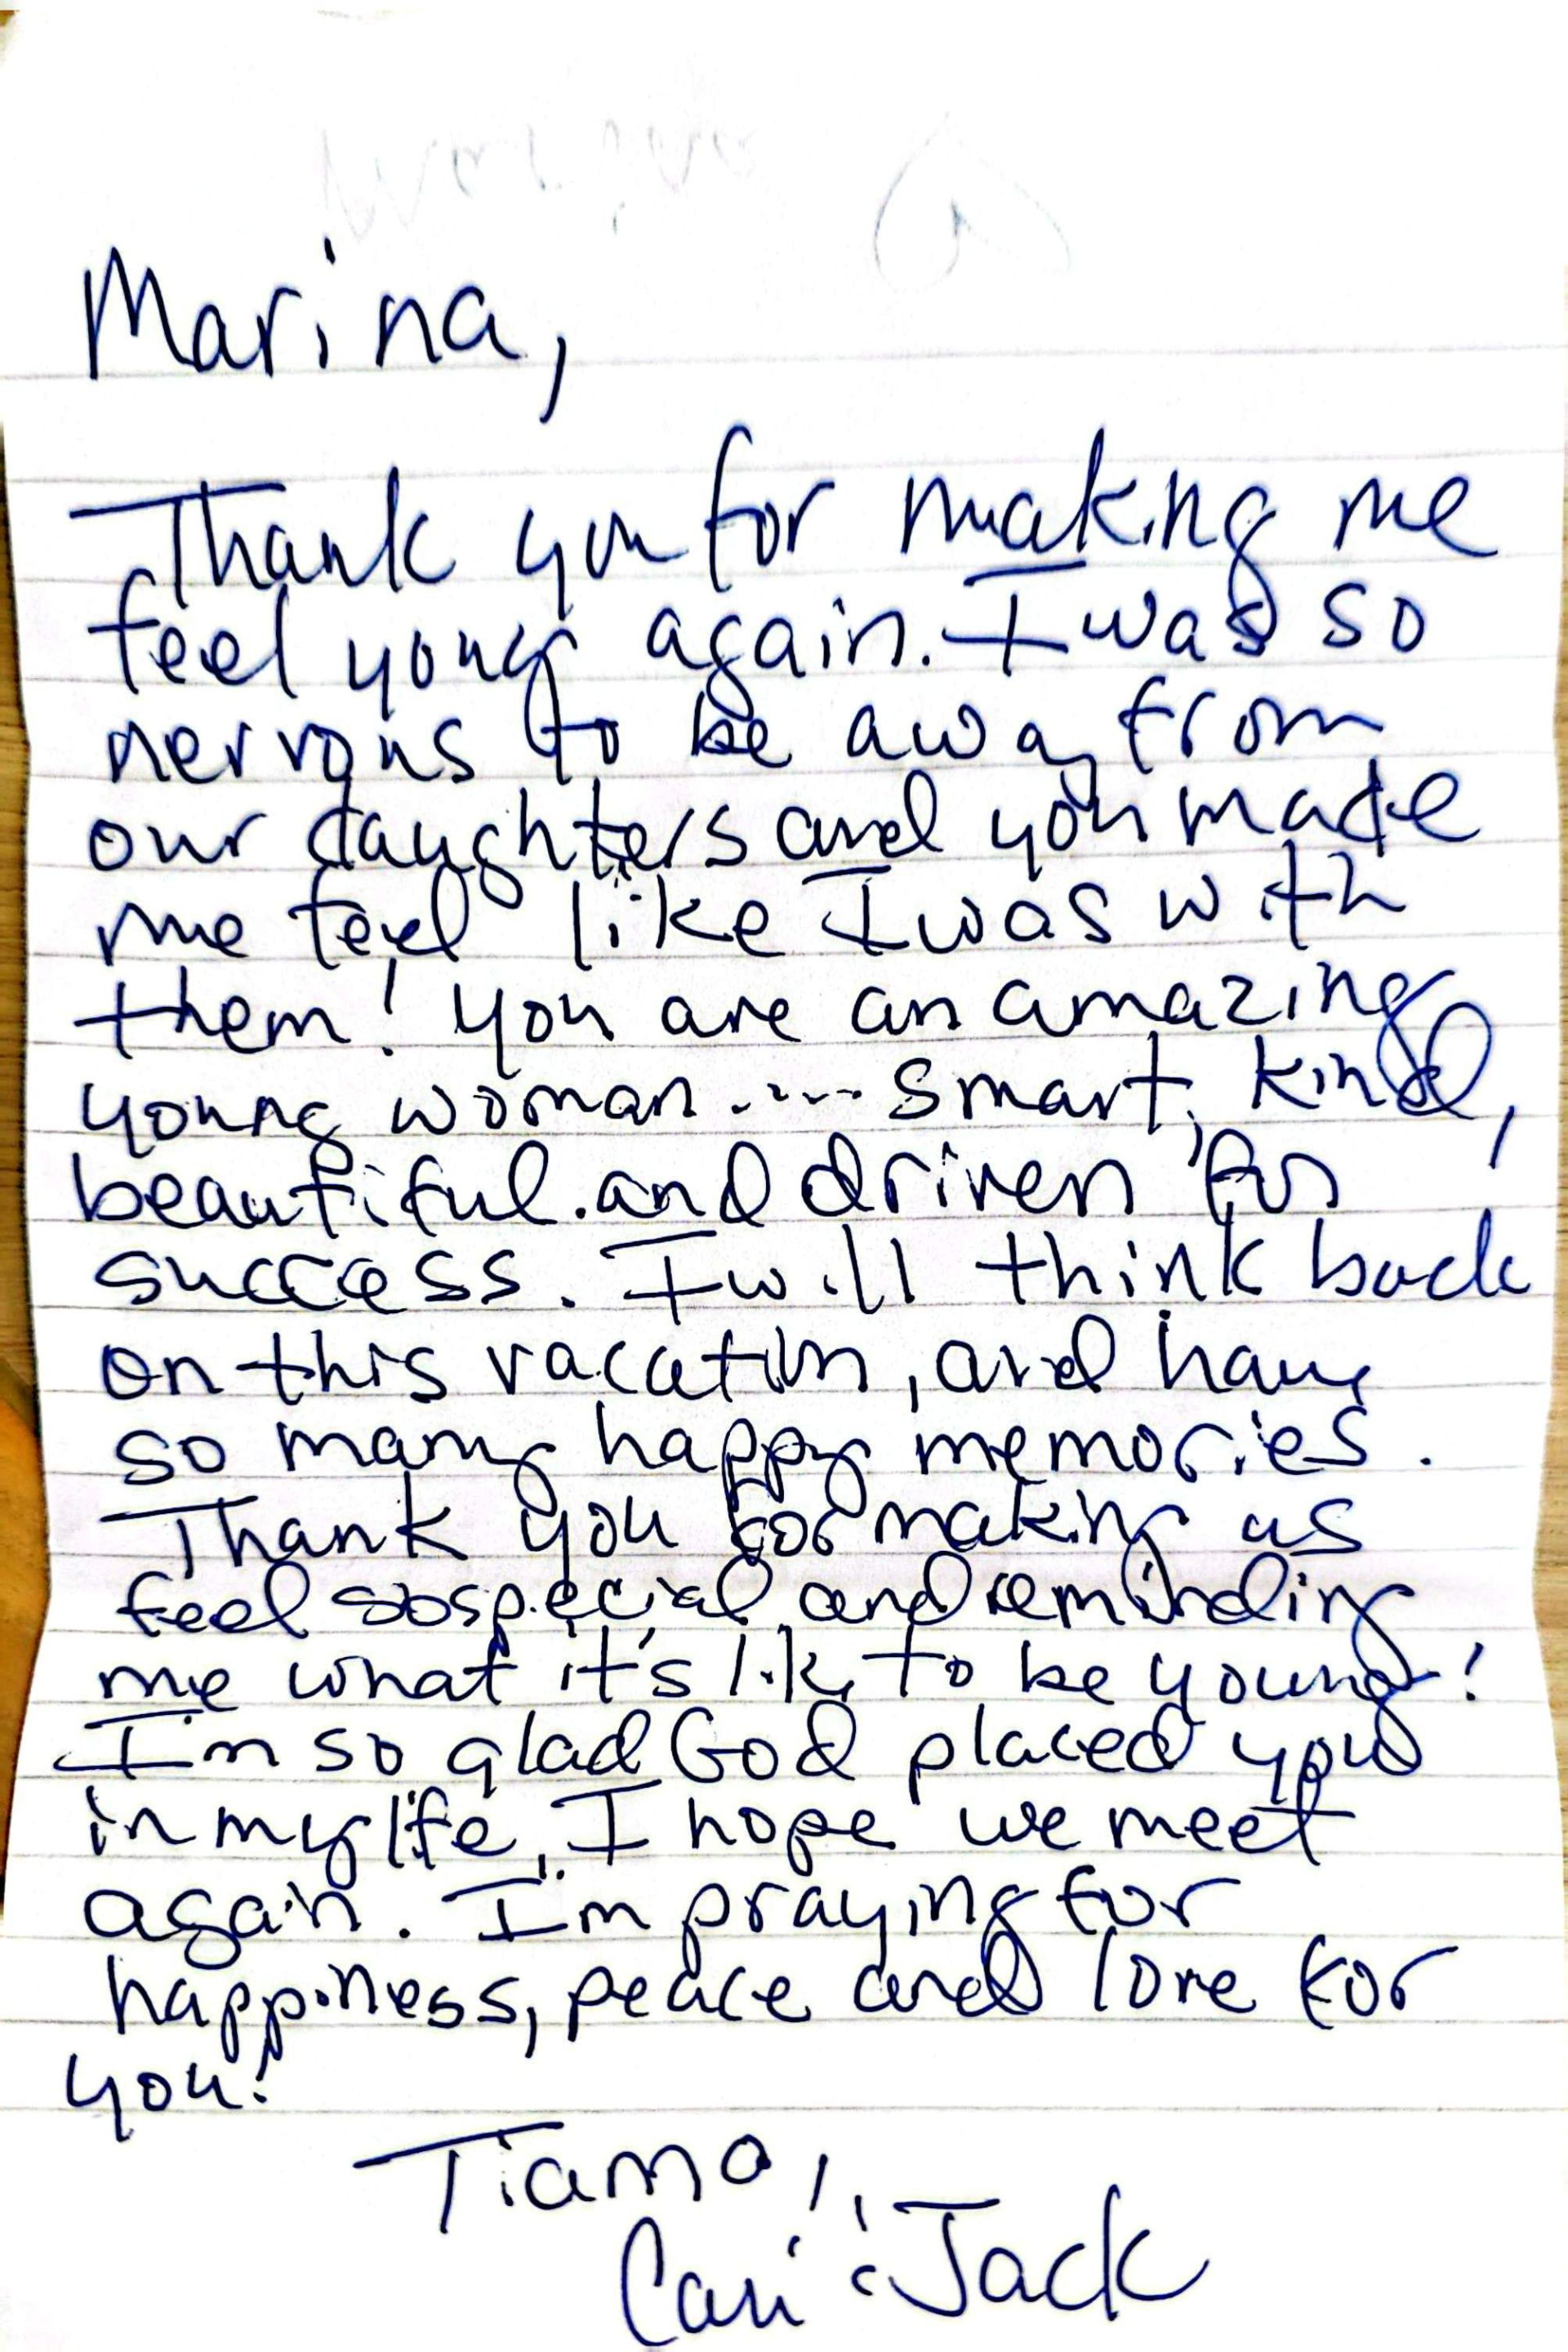 Marina,
Thank you for making me
feel young again. I was so
nervous to be away from
our daughters and you made
me feel like I was with
them! you are an amazing
young woman..... smart, kind,
beautiful. and driven for
success. I will think back
on this vacation, and have
so many happy memories.
Thank you for making us
feel so special and reminding
me what it's like to be young!
I'm so glad God placed you
in my life, I hope we meet
again. I'm praying for
happiness, peace and love for
you!
Tiamo,
Jack